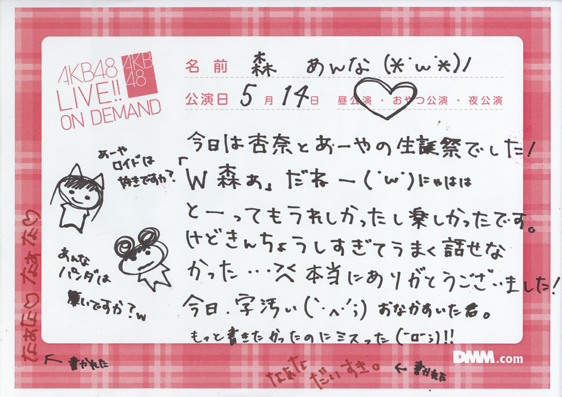 AKB48
LIVE!!
ON DEMAND
AKB
48
名前 森 あんな (*'ω'*)ノ
公演日 5月14日 昼公演・おやつ公演・夜公演
今日は杏奈とあーやの生誕祭でした!
「W森ぁ」だねー(´ω`)にゃはは
とーってもうれしかったし楽しかったです。
けどきんちょうしすぎてうまく話せな
かった…>< 本当にありがとうございました!
今日、字汚い(`･ヘ･´;) おなかすいた君。
もっと書きたかったのにミスった(´ロ`;)!!
あーや
ロイドは
好きですか?
あんな
パンダは
悪いですか?w
たぁたん♡ なぁな♡
← 書かれた
なぁな だいすき。 ← 書かれた
DMM.com